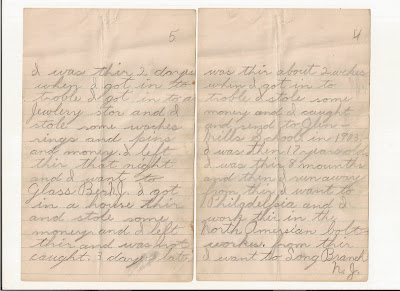 5
I was thir 2 dayes
when I got in to
troble I got in to a
Jewlery stor and I
stole some waches
rings and pins
and money I left
thir that night
and I want to
Glass
in a house thir
and stole some
money and I left
thir and was not
caught. 3 days late
4
was thir about 2 wekes
when I got in to
troble I stole some
money and I caught
and send to Glen
Mills School in 1903
I was then 12 years old
I was thir 8 mounths
and then I runaway
from thir I want to
Philgdelfia and I
work thir in the
North Amersian bolt
workes. from thir
I want to Long Branch
N. J.